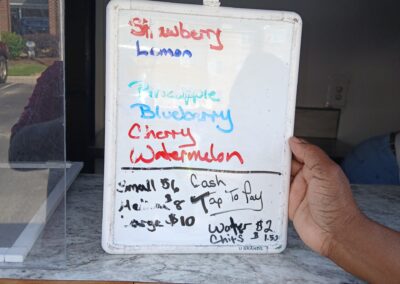 Strawberry
Lemon
Pineapple
Blueberry
Cherry
Watermelon
Small $6 Cash
Medium $8 Tap To Pay
Large $10
Water $2
Chips $1.50